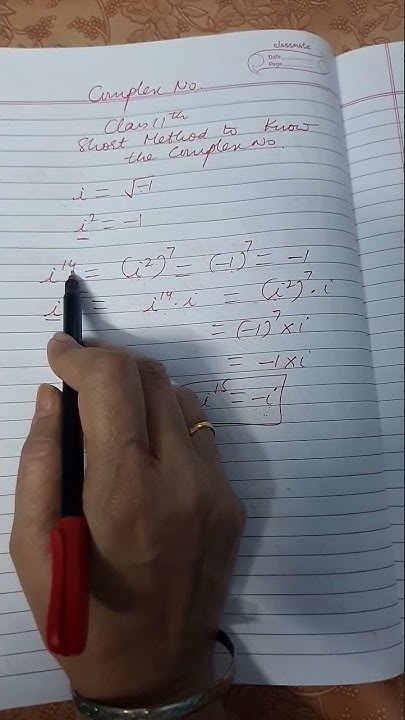 classmate
Date
Page
Complex No.
Class 11th
Short Method to Know
the Complex No.
i = √-1
i² = -1
i¹⁴ = (i²)⁷ = (-1)⁷ = -1
i = i¹⁴·i = (i²)⁷·i
= (-1)⁷×i
= -1×i
i¹⁵ = -i